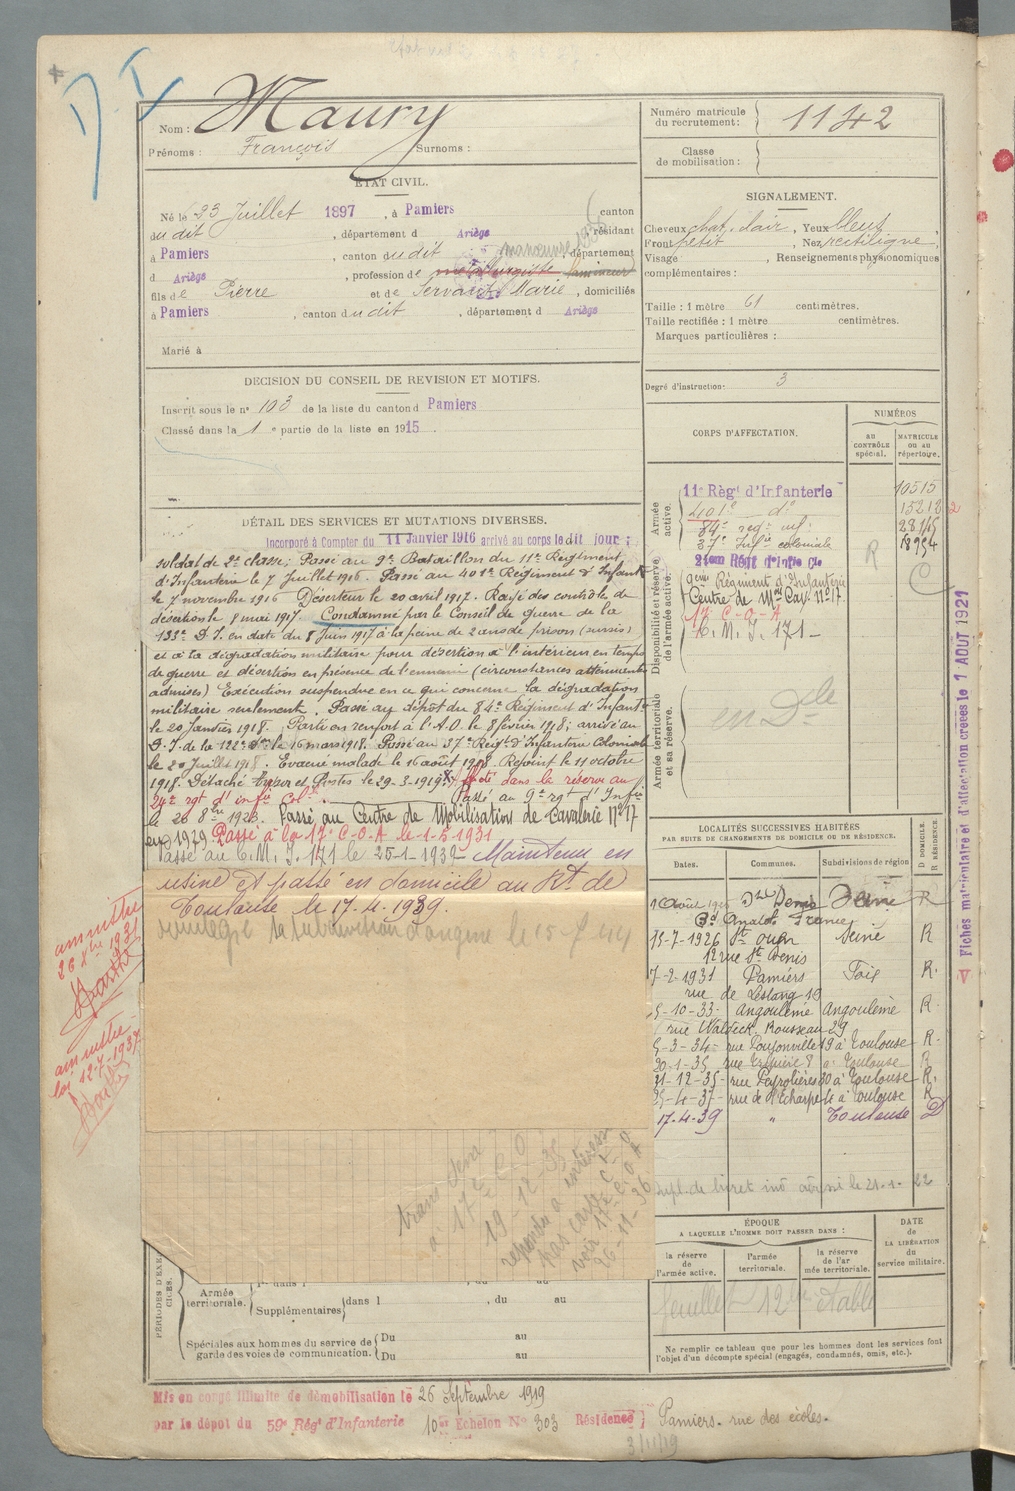 D. I.
Nom : Maury
Prénoms : François Surnoms :
ÉTAT CIVIL.
Né le 23 Juillet 1897, à Pamiers canton
du dit, département d Ariège résidant
à Pamiers, canton du dit manœuvre, département
d Ariège, profession de métallurgiste lamineur
fils de Pierre et de Servant Marie, domiciliés
à Pamiers, canton du dit, département d Ariège
Marié à
DECISION DU CONSEIL DE REVISION ET MOTIFS.
Inscrit sous le n° 103 de la liste du canton d Pamiers
Classé dans la 1e partie de la liste en 1915.
DÉTAIL DES SERVICES ET MUTATIONS DIVERSES.
Incorporé à Compter du 11 Janvier 1916 arrivé au corps le dit jour ;
soldat de 2e classe; Passé au 9e Bataillon du 11e Régiment
d'Infanterie le 7 Juillet 1916. Passé au 401e Régiment d'Infant
le 7 novembre 1916 Déserteur le 20 avril 1917. Rayé des contrôles de
désertion le 8 mai 1917. Condamné par le Conseil de guerre de la
133e D. I. en date du 8 Juin 1917 à la peine de 2 ans de prison (sursis)
et à la dégradation militaire pour désertion à l'intérieur en temps
de guerre et désertion en présence de l'ennemi (circonstances atténuantes
admises) Exécution suspendue en ce qui concerne la dégradation
militaire seulement. Passé au dépôt du 84e Régiment d'Infant
le 20 Janvier 1918. Parti en renfort à l'A.O. le 8 février 1918; arrivé au
D. I. de la 122e le 16 mars 1918. Passé au 37e Régt d'Infanterie Coloniale
le 20 Juillet 1918. Evacué malade le 16 août 1918. Rejoint le 11 octobre
1918. Détaché le 29-3-1919. dans la réserve au
24e rgt d'infie Cole. Passé au 9e rgt d'Infie
le 20 8bre 1923. Passé au Centre de Mobilisation de Cavalerie N° 17
en 1929. Passé à la 17e C.O.A. le 1-5-1931
Passé au C.M.I. 171 le 25-1-1939 Maintenu en
usine et passé en domicile au Rt de
Toulouse le 17.4.1939.
la subdivision d'origine le 15-7-44
amnistie
26 Xbre 1931
amnistie
loi 12-7-1937
trans Sena
à 17e C O
19-12-35
pas casé
voir 17e C.O.A
26-11-36
PÉRIODES D'EXERCICES.
Armée territoriale.
Supplémentaires dans l , du au
Spéciales aux hommes du service de garde des voies de communication.
Du au
Du au
Mis en congé illimité de démobilisation le 26 Septembre 1919
par le dépôt du 59e Régt d'Infanterie 10me Echelon N° 303 Résidence } Pamiers. rue des écoles.
3/11/19
Numéro matricule du recrutement : 1142
Classe de mobilisation :
SIGNALEMENT.
Cheveux chat. clair, Yeux bleus,
Front petit, Nez rectiligne,
Visage , Renseignements physionomiques
complémentaires :
Taille : 1 mètre 61 centimètres.
Taille rectifiée : 1 mètre centimètres.
Marques particulières :
Degré d'instruction : 3
CORPS D'AFFECTATION.
NUMÉROS
au CONTRÔLE spécial.
MATRICULE ou au répertoire.
Armée active.
11e Régt d'Infanterie 10515
401e do 15212
84e reg. inf. 28145
37e Infie coloniale 18954
Disponibilité et réserve de l'armée active.
24em Régt d'Infie Cle
9eme Régiment d'Infanterie
Centre de Mon Cav. N° 17. R C
17e C-O-A
C.M.I. 171
Armée territoriale et sa réserve.
en Dcle
LOCALITÉS SUCCESSIVES HABITÉES
PAR SUITE DE CHANGEMENTS DE DOMICILE OU DE RÉSIDENCE.
Dates. Communes. Subdivisions de région D DOMICILE. R RÉSIDENCE.
1 Août St Denis Seine R
Bd Anatole France
15-7-1926 St Ouen Seine R
12 rue St Denis
7-2-1931 Pamiers Foix R.
rue de Lestang 10
5-10-33- Angoulême Angoulême R
rue Waldeck Rousseau 29
5-3-34- rue Pouponville 19 à Toulouse R.
20-1-35 8 à Toulouse R
21-12-35- rue Peyrolières 80 à Toulouse R.
25-4-37- rue de l'Echarpe 4 à Toulouse R
17.4.39 " Toulouse D
livret adressé le 21-1-22
ÉPOQUE
A LAQUELLE L'HOMME DOIT PASSER DANS :
DATE DE LA LIBÉRATION du service militaire.
la réserve de l'armée active.
l'armée territoriale.
la réserve de l'armée territoriale.
feuillet 12 établi
Ne remplir ce tableau que pour les hommes dont les services font
l'objet d'un décompte spécial (engagés, condamnés, omis, etc.).
Fiches matriculaire et d'affectation créées le 1 AOUT 1921